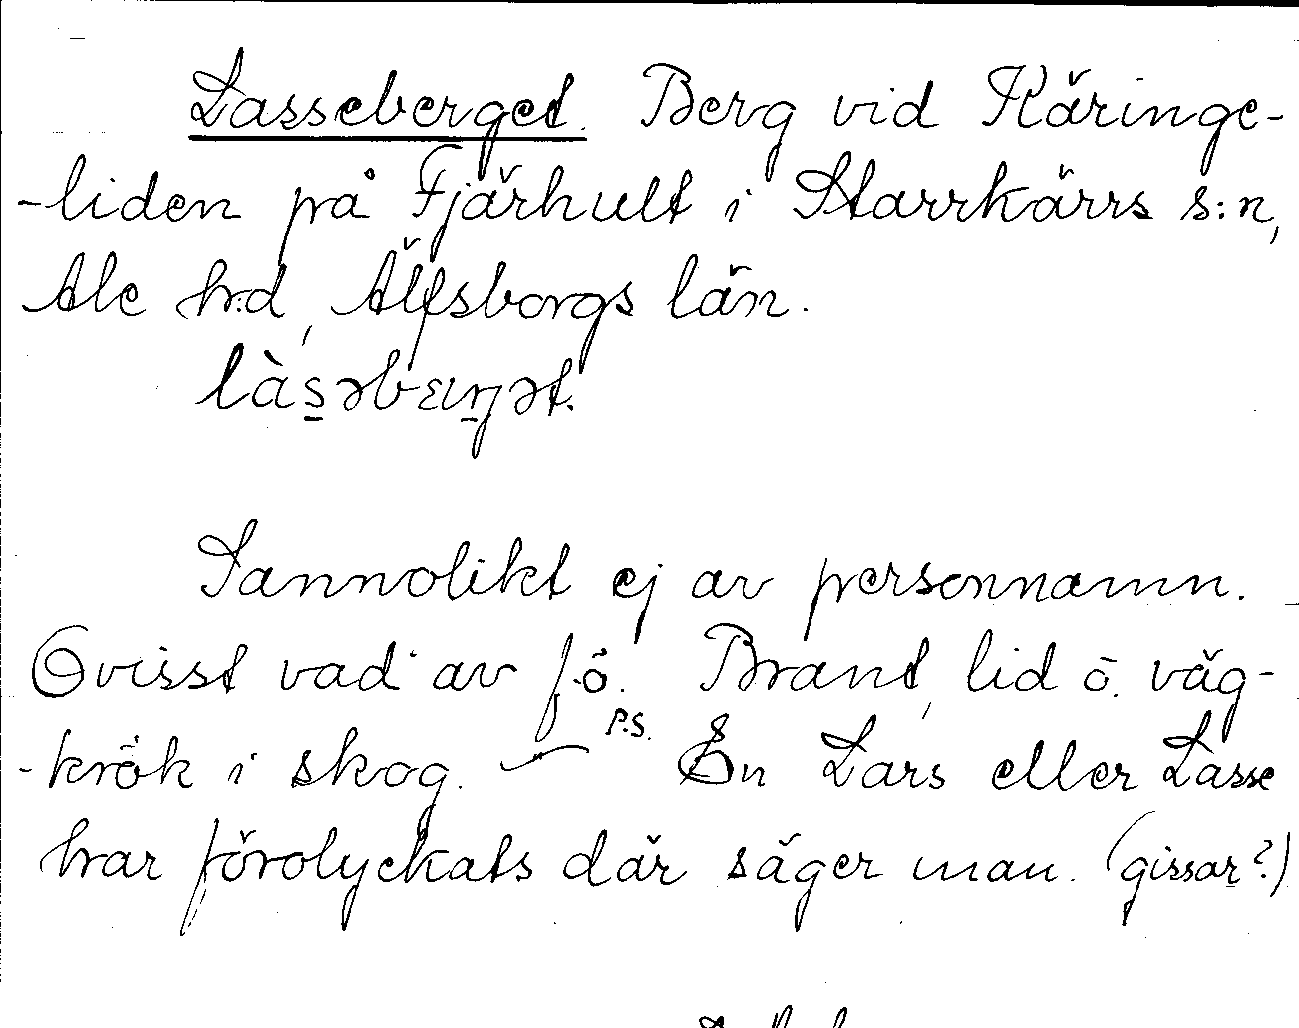 Lasseberget. Berg vid Käringe-
-liden på Fjärhult i Starrkärrs s:n,
Ale h:d, Älfsborgs län.
làsəbærŋət.
Sannolikt ej av personnamn.
Ovisst vad av f.ö. Brant lid o. väg-
-krök i skog. — P.S. En Lars eller Lasse
har förolyckats där säger man. (gissar?)